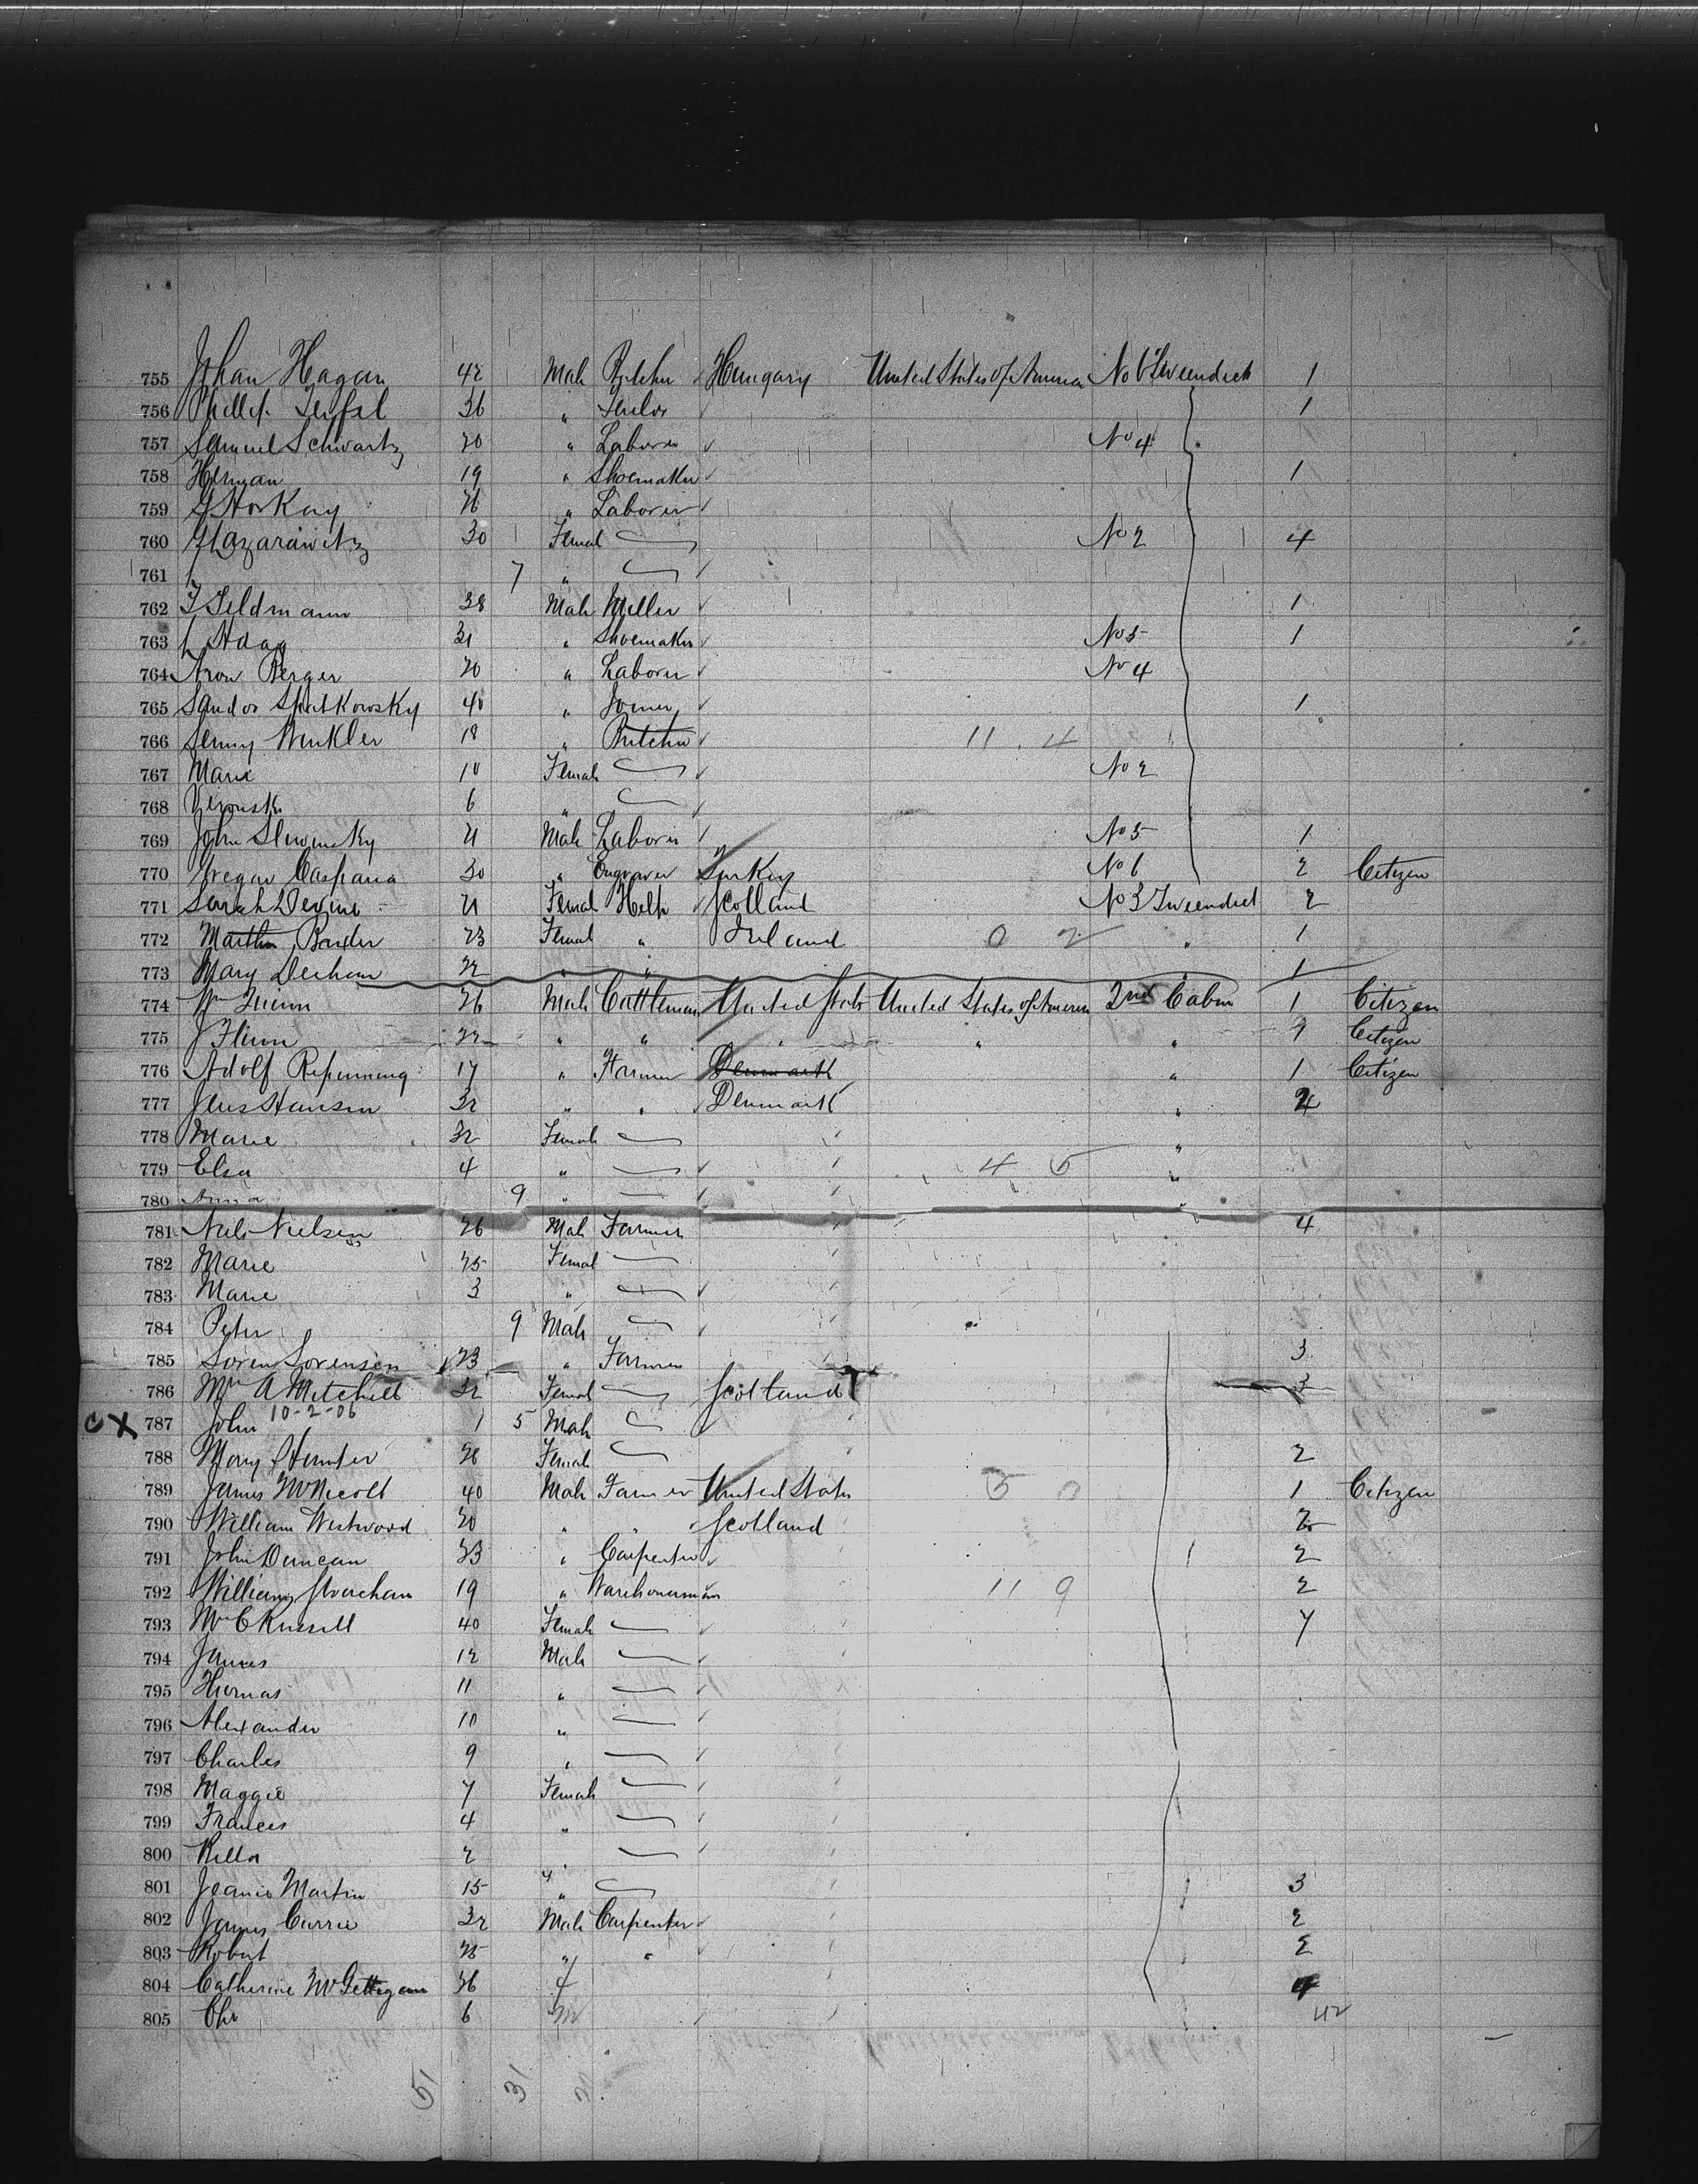 755 Johan Hagan 42 Male Butcher Hungary United States of America No 6 Tweendeck 1
756 Phillip 36 " 1
757 Samuel Schwartz 20 " Laborer No 4
758 Herman 19 " Shoemaker 1
759 26 " Laborer
760 30 Female No 2 4
761 7 "
762 38 Male Miller 1
763 31 " Shoemaker No 5 1
764 Aron Berger 20 " Laborer No 4
765 Sandor 40 " Joiner 1
766 Winkler 18 " Butcher 11 . 4
767 Marie 10 Female No 2
768 6 "
769 John 21 Male Laborer No 5 1
770 30 " Engraver Turkey No 6 2 Citizen
771 Sarah Devine 21 Female Help Scotland No 3 Tweendeck 2
772 23 Female " Ireland 0 2 " 1
773 Mary 22 " " 1
774 Wm 26 Male Cattleman United States United States of America 2nd Cabin 1 Citizen
775 J Flinn 22 " " " " " Citizen
776 Adolf 17 " Farmer Denmark " 1 Citizen
777 Jens Hansen 32 " " Denmark " 4
778 Marie 32 Female "
779 Elsa 4 " 4 5 "
780 Anna 9 " "
781 Niels Nielsen 26 Male Farmer 4
782 Marie 25 Female
783 Marie 3 "
784 Peter 9 Male
785 Soren Sorensen 23 " Farmer 3
786 Mrs A Mitchell 32 Female Scotland 3
10-2-06
X 787 John 1 5 Male
788 Mary Hunter 26 Female 2
789 James McNicoll 40 Male Farmer United States 5 0 1 Citizen
790 William Westwood 20 " " Scotland 2
791 John Duncan 23 " Carpenter 2
792 William Strachan 19 " Warehouseman 11 9 2
793 Mrs C Russell 40 Female 7
794 James 12 Male
795 Thomas 11 "
796 Alexander 10 "
797 Charles 9 "
798 Maggie 7 Female
799 Frances 4 "
800 2 "
801 Jeanie Martin 15 " 3
802 James Currie 32 Male Carpenter 2
803 Robert 25 " " 2
804 Catherine McGettigan 26 f 4
805 Chs 6 m 42
51 31